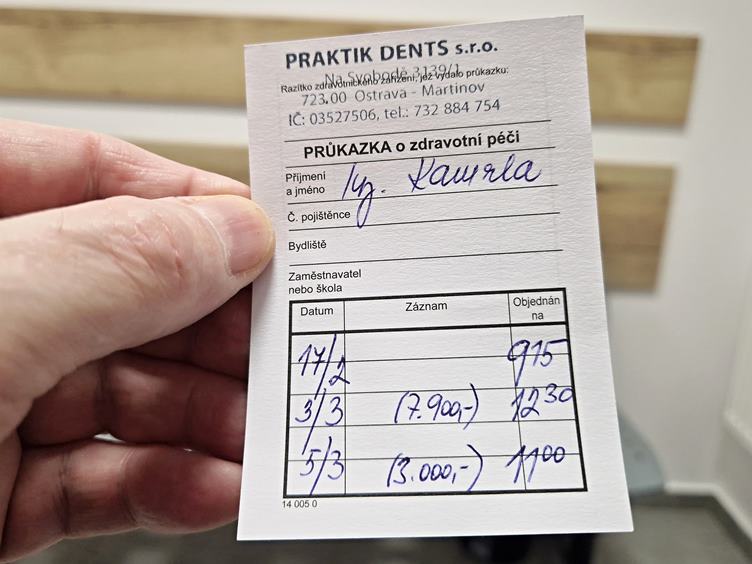 PRAKTIK DENTS s.r.o.
Na Svobodě 3139/1
Razítko zdravotnického zařízení, jež vydalo průkazku:
723 00 Ostrava - Martinov
IČ: 03527506, tel.: 732 884 754
PRŮKAZKA o zdravotní péči
Příjmení a jméno Ing. Kamrla
Č. pojištěnce
Bydliště
Zaměstnavatel
nebo škola
Datum Záznam Objednán na
17/2 915
3/3 (7.900,-) 1230
5/3 (3.000,-) 1100
14 005 0